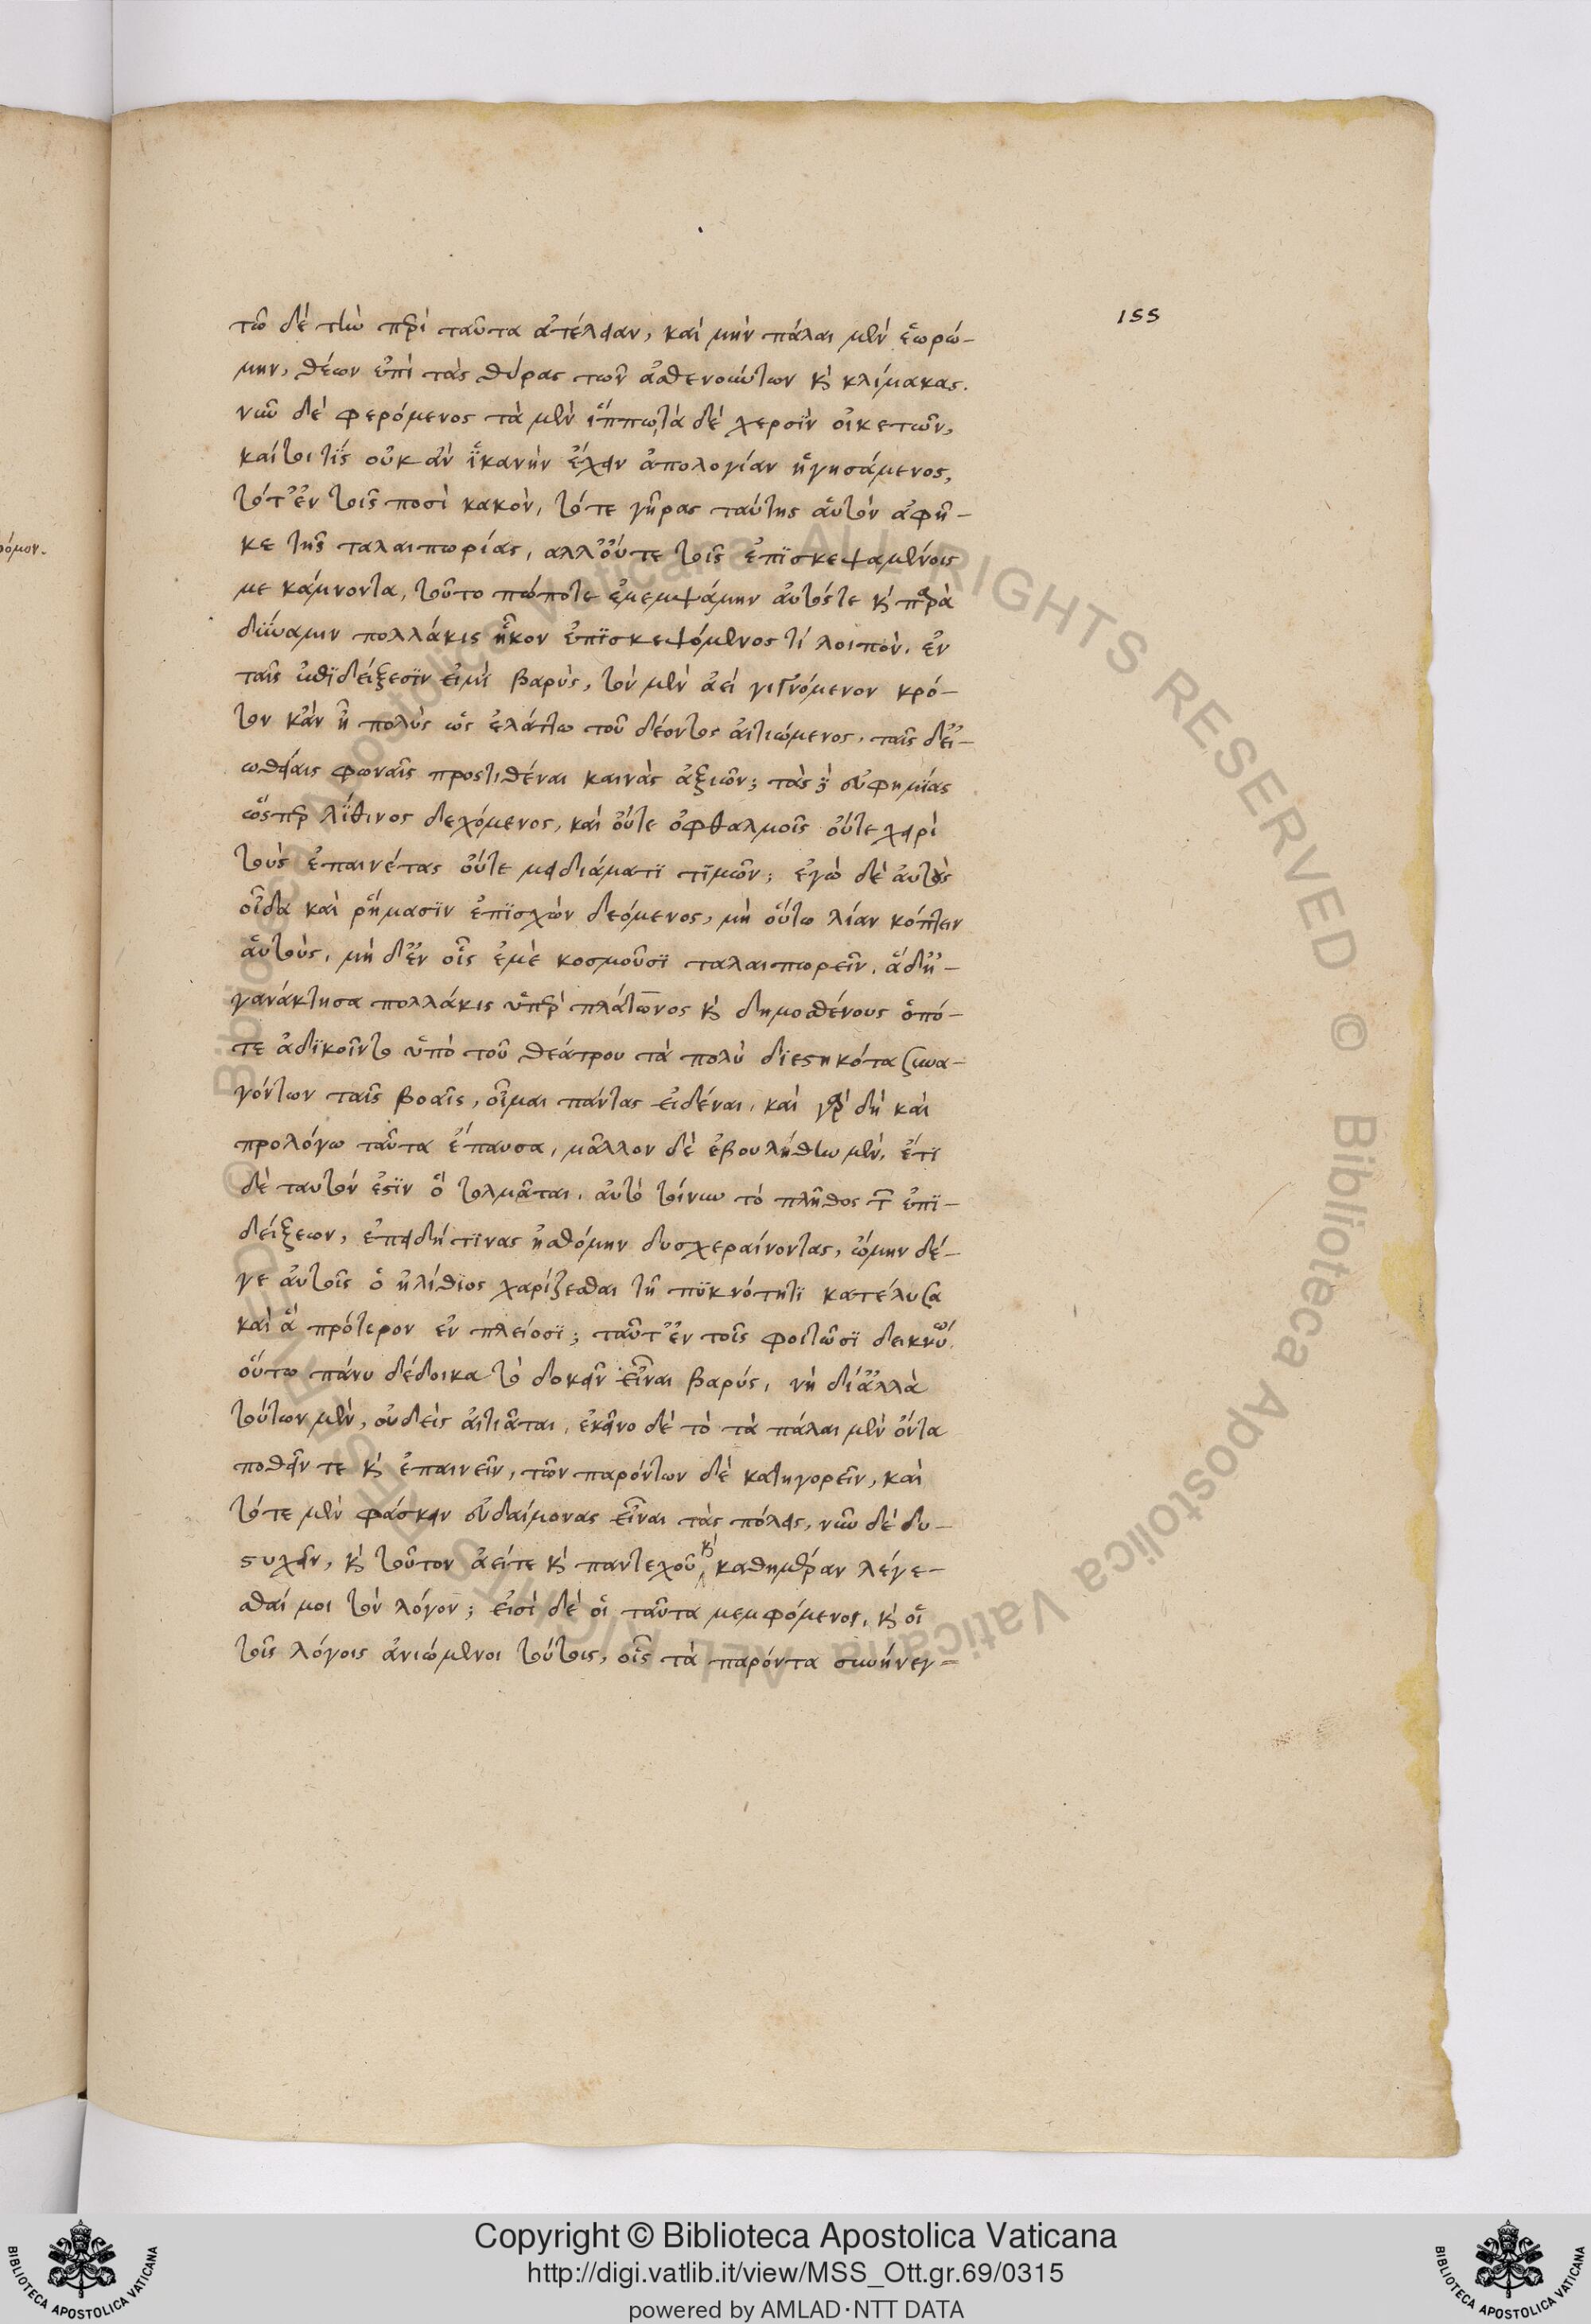 155
τῶ δὲ τὴν περὶ ταῦτα ἀτέλειαν, καὶ μὴν πάλαι μὲν ἑωρώ-
μην, θέων ἐπὶ τὰς θύρας τῶν ἀσθενούντων κ κλίμακας.
νῦν δὲ φερόμενος τὰ μὲν ἵππω, τὰ δὲ χερσὶν οἰκετῶν,
καίτοι τίς οὐκ ἂν ἱκανὴν ἔχειν ἀπολογίαν ἡγησάμενος,
τό τ' ἐν τοῖς ποσὶ κακὸν, τό τε γῆρας ταύτης αὑτὸν ἀφῆ-
κε τῆς ταλαιπωρίας, ἀλλ' οὔτε τοῖς ἐπϊσκεψαμένοις
με κάμνοντα, τοῦτο πώποτε ἐμεμψάμην αὐτός τε κ παρὰ
δύναμιν πολλάκις ἧκον ἐπϊσκεψόμενος τί λοιπὸν. ἐν
ταῖς ἐπϊδείξεσϊν εἰμὶ βαρὺς, τὸν μὲν ἀεὶ γιγνόμενον κρό-
τον κἂν ᾖ πολὺς ὡς ἐλάττω τοῦ δέοντος αἰτιώμενος. ταῖς δ' εἰ-
ωθείαις φωναῖς προστιθέναι καινὰς ἀξιῶν; τὰς δ' εὐφημίας
ὥσπερ λίθινος δεχόμενος, καὶ οὔτε ὀφθαλμοῖς οὔτε χειρὶ
τοὺς ἐπαινέτας οὔτε μειδιάματϊ τϊμῶν; ἐγὼ δὲ αὐτὸς
οἶδα καὶ ῥήμασϊν ἐπϊσχὼν δεόμενος, μὴ οὕτω λίαν κόπτειν
αὑτοὺς, μὴ δ' ἐν οἷς ἐμὲ κοσμοῦσϊ ταλαιπωρεῖν. ἃ δ' ἠ-
γανάκτησα πολλάκις ὑπὲρ πλάτωνος κ δημοσθένους ὁπό-
τε ἀδϊκοῖντο ὑπὸ τοῦ θεάτρου τὰ πολὺ διεστηκότα συνα-
γόντων ταῖς βοαῖς, οἶμαι πάντας εἰδέναι, καὶ γὰρ δὴ καὶ
προλόγω ταῦτα ἔπαυσα, μᾶλλον δὲ ἐβουλήθην μὲν, ἔτϊ
δὲ ταυτόν ἐστϊν ὃ τολμᾶται. αὐτὸ τοίνυν τὸ πλῆθος τῶν ἐπϊ-
δείξεων, ἐπειδή τϊνας ἠσθόμην δυσχεραίνοντας, ᾤμην δέ-
γε αὐτοῖς ὁ ἠλίθιος χαρίζεσθαι τῆ πϋκνότητϊ κατέλυσα
καὶ ἃ πρότερον ἐν πλείοσϊ; ταῦτ' ἐν τοῖς φοιτῶσϊ δεικνύω.
οὕτω πάνυ δέδοικα τὸ δοκεῖν εἶναι βαρύς, νὴ δί' ἀλλὰ
τούτων μὲν, οὐδεὶς αἰτιᾶται, ἐκεῖνο δὲ τὸ τὰ πάλαι μὲν ὄντα
ποθεῖν τε κ ἐπαινεῖν, τῶν παρόντων δὲ κατηγορεῖν, καὶ
τότε μὲν φάσκειν εὐδαίμονας εἶναι τὰς πόλεις, νῦν δὲ δυ-
στυχεῖν, κ τοῦτον ἀεί τε κ πανταχοῦ κ καθημέραν λέγε-
σθαί μοι τὸν λόγον; εἰσὶ δὲ οἱ ταῦτα μεμφόμενοι, κ οἱ
τοῖς λόγοις ἀνιώμενοι τούτοις, οἷς τὰ παρόντα συνήνεγ-
Copyright © Biblioteca Apostolica Vaticana
http://digi.vatlib.it/view/MSS_Ott.gr.69/0315
powered by AMLAD·NTT DATA